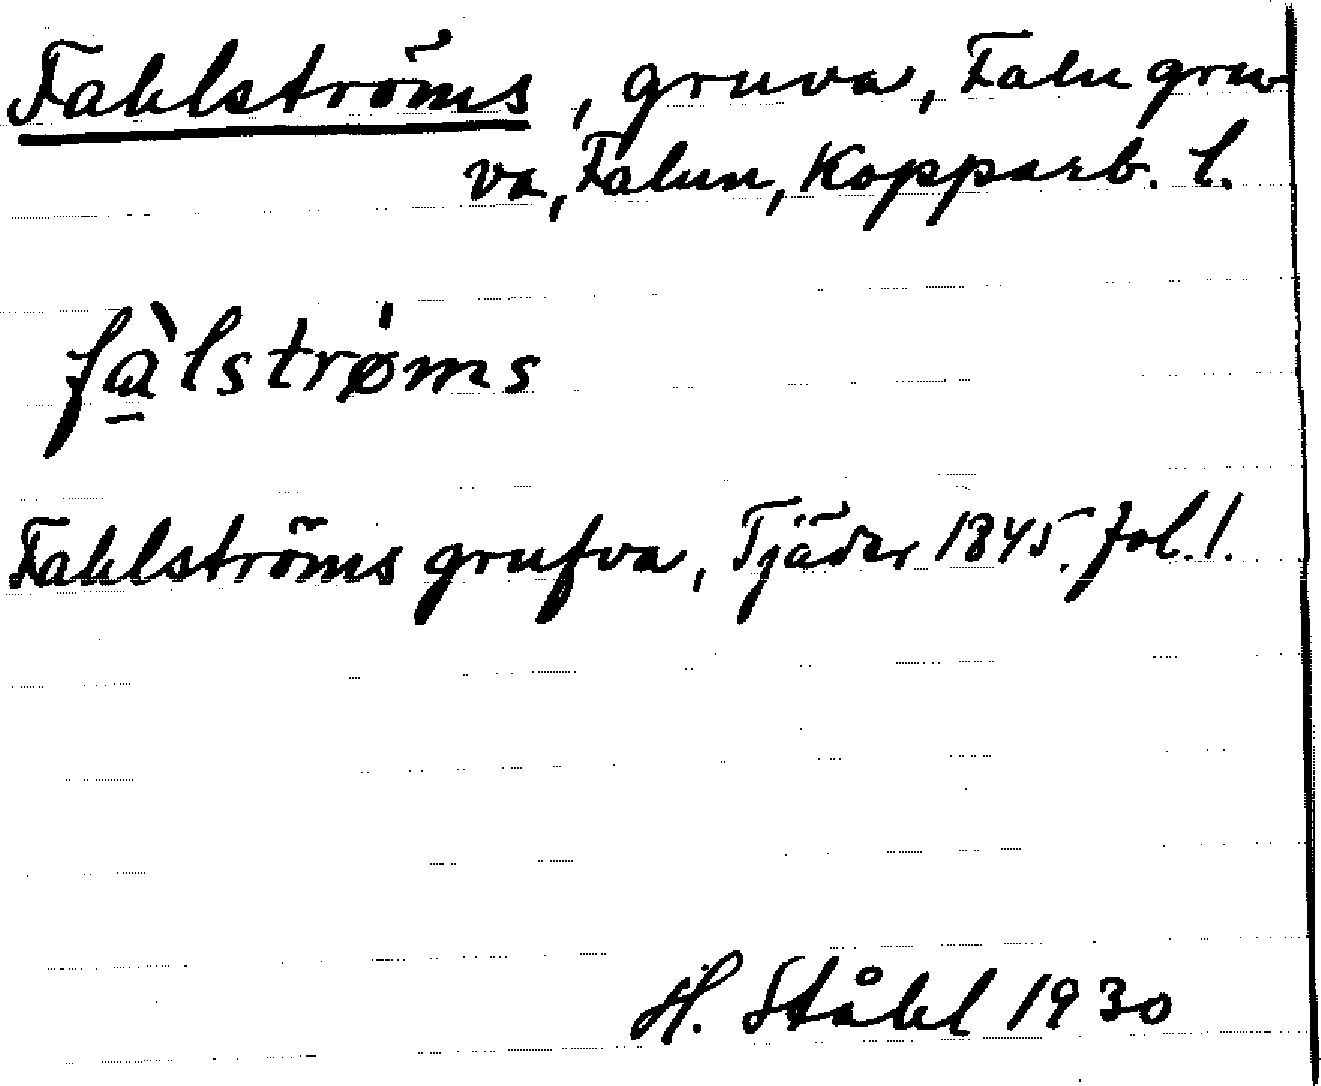 Fahlströms, gruva, Falu gru-
va, Falun, Kopparb. l.
fàlstrøms
Fahlströms grufva, Tjäder 1845. fol. 1.
H. Ståhl 1930